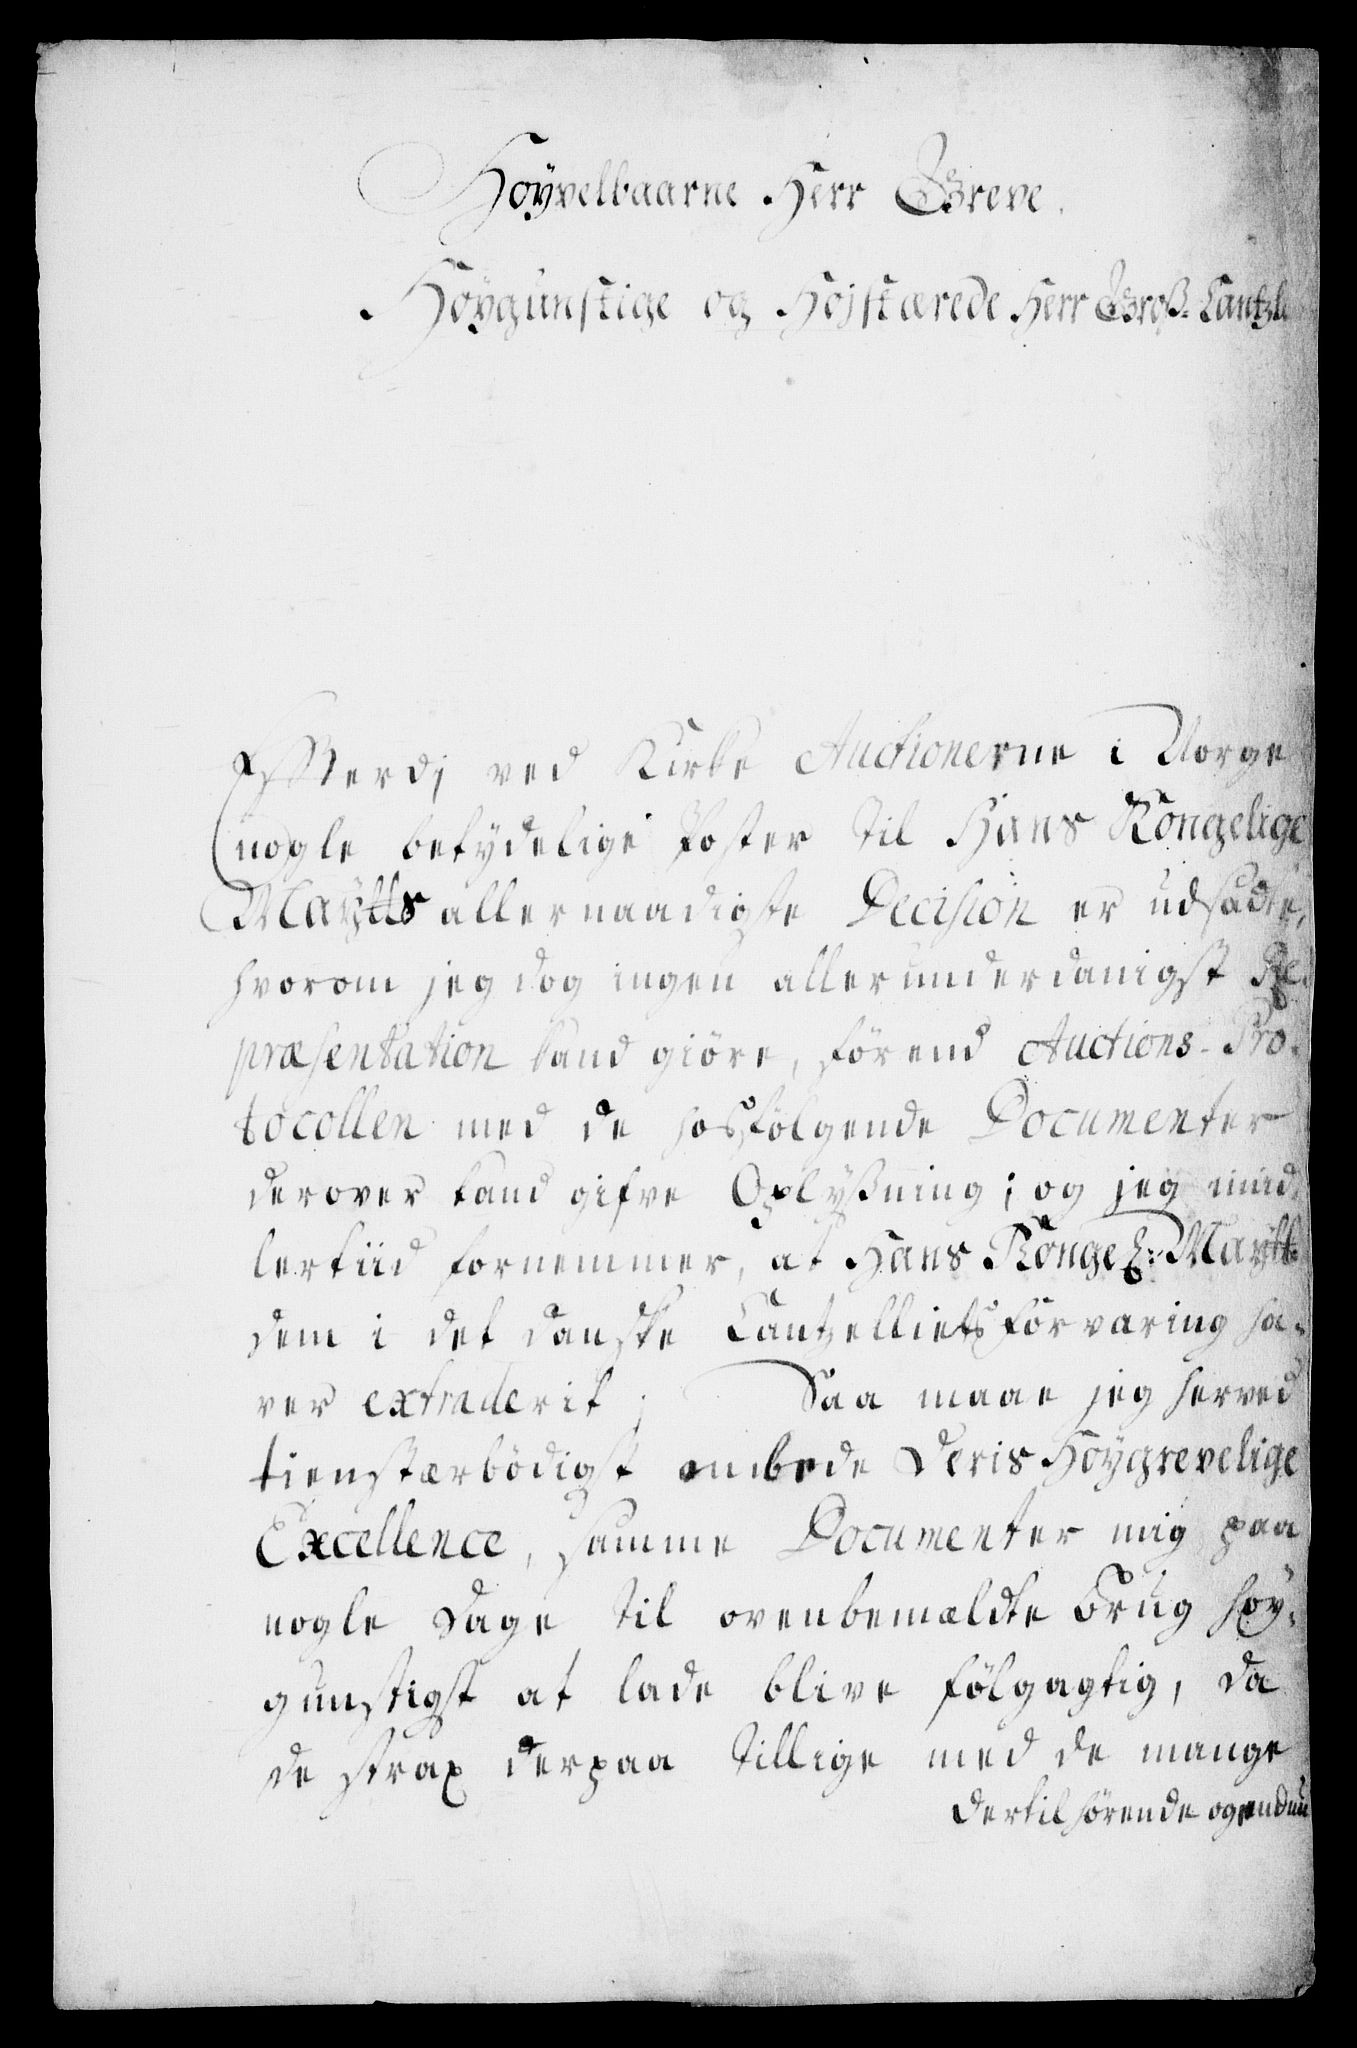 Høyvelbaarne Herr Greve.
Høygunstige og Højstærede Herr Groß-Cantzle
Effterdj ved Kirke Auctionerne i Norge
nogle betydelige Poster til Hans Kongelige
Maytts allernaadigste Decision er udsadte,
hvorom jeg dog ingen allerunderdanigst Re-
præsentation kand giöre, förend Auctions-Pro-
tocollen med de hosfölgende Documenter
derover kand gifve Oplysßning; og jeg mid-
lertiid fornemmer, at Hans Kongel: Maytt:
dem i det danske Cantzelliets forvaring ha-
ver extraderit; Saa maae jeg herved
tienstærbödigst ombede Deris Høygrevelige
Excellence, samme Documenter mig paa
nogle Dage til ovenbemældte Brug høy-
gunstigst at lade blive fölgagtig, da
de strax derpaa tillige med de mange
dertilhørende og endnu